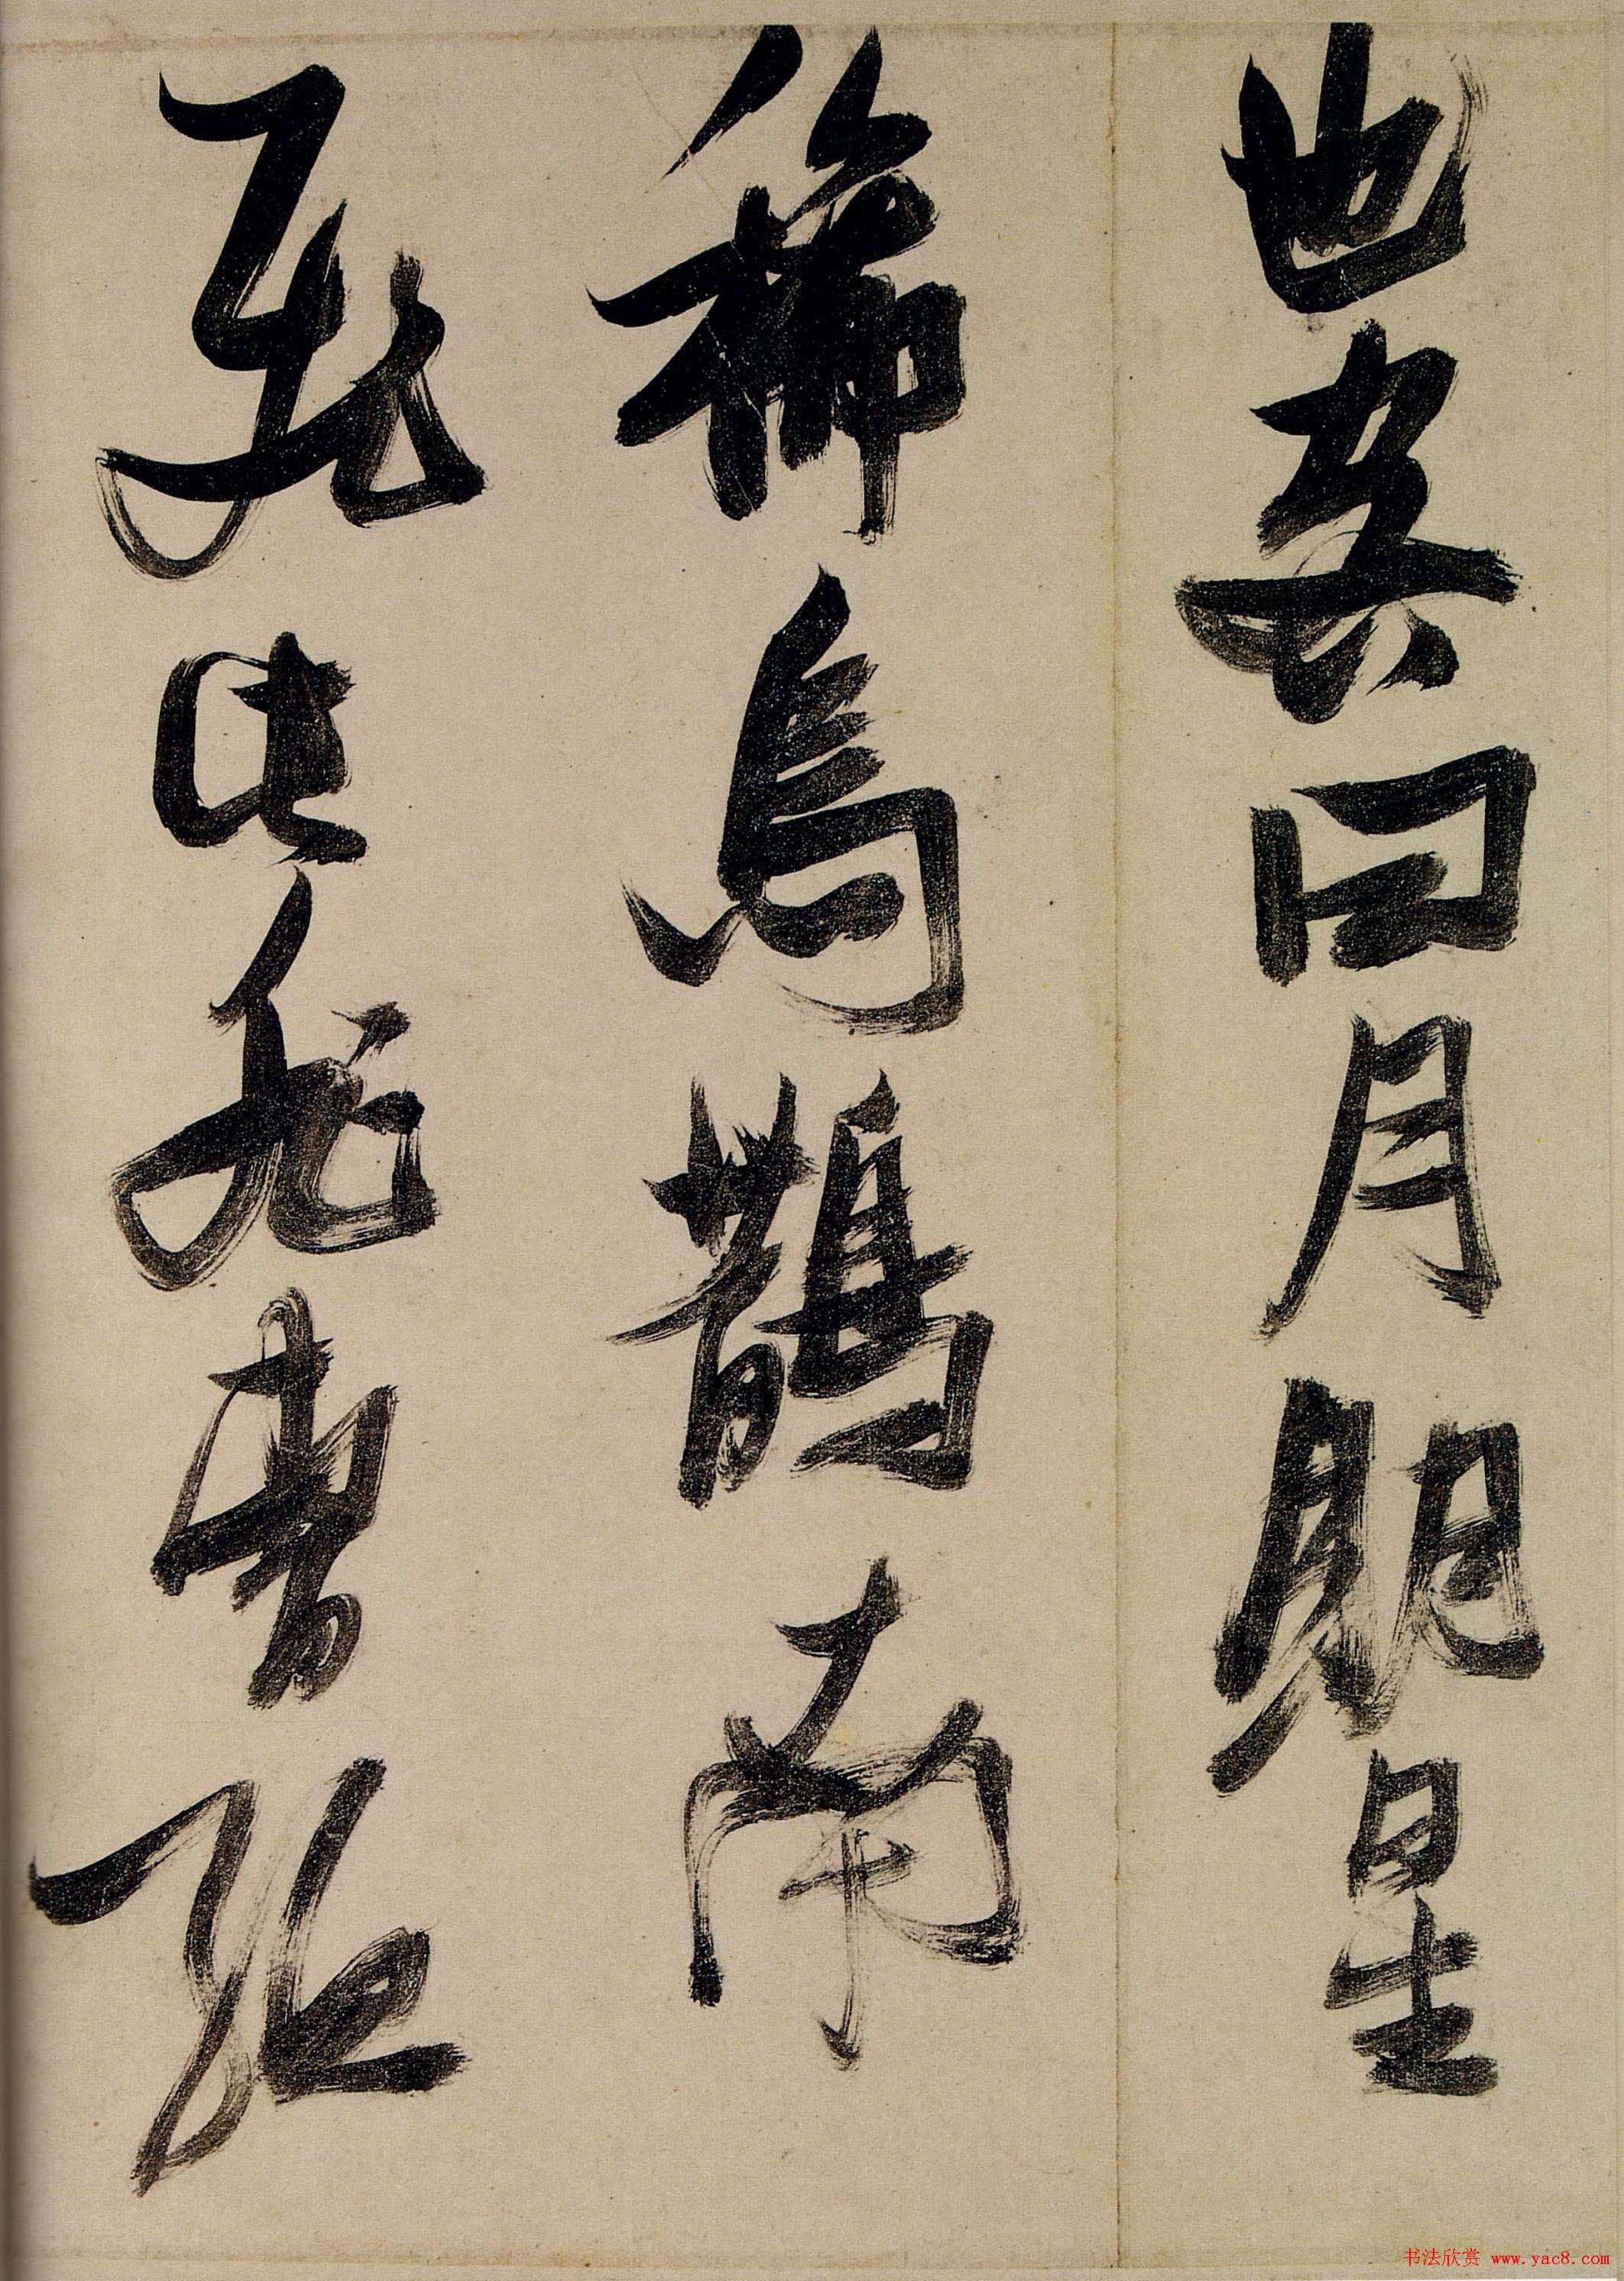 也客曰月明星
稀烏鵲南
飛此非曹孟
书法欣赏 www.yac8.com